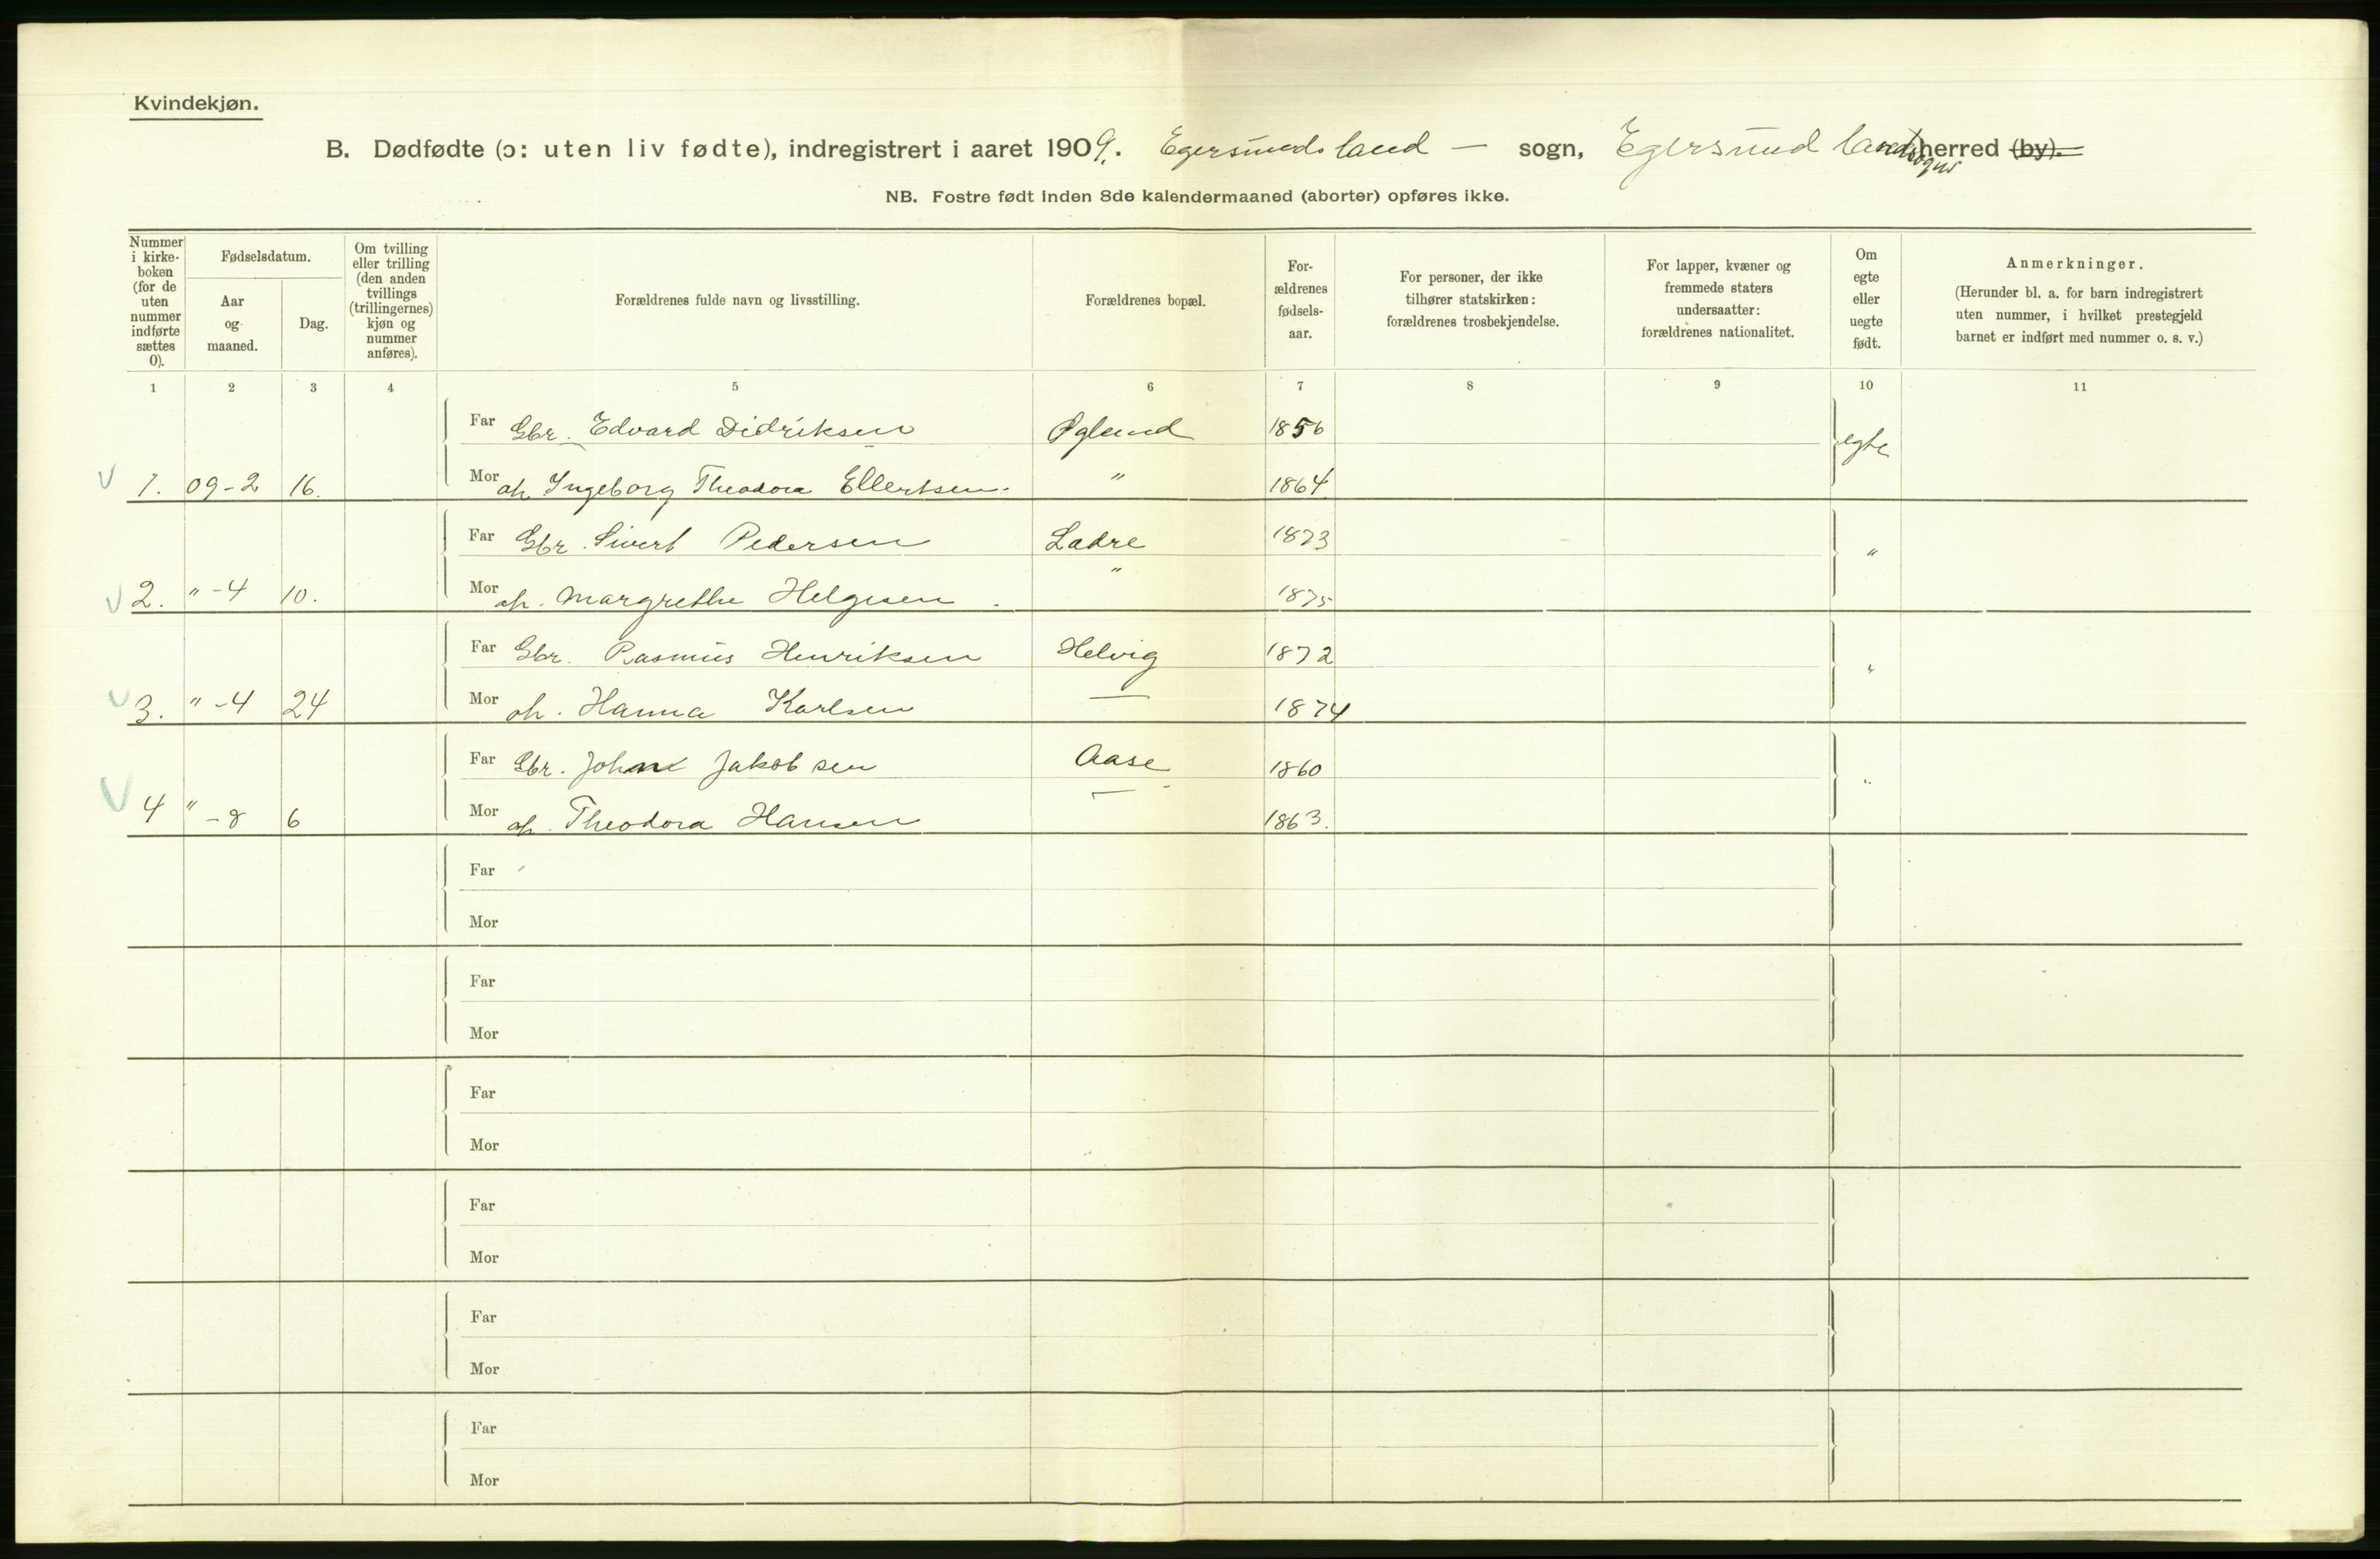 Kvindekjøn.
B. Dødfødte (ɔ: uten liv fødte), indregistrert i aaret 1909. Egersunds land — sogn, Egersund landsogns herred (by).
NB. Fostre født inden 8de kalendermaaned (aborter) opføres ikke.
Nummer i kirke- boken (for de uten nummer indførte sættes 0).
Fødselsdatum.
Aar og maaned.
Dag.
Om tvilling eller trilling (den anden tvillings (trillingernes) kjøn og nummer anføres).
Forældrenes fulde navn og livsstilling.
Forældrenes bopæl.
For- ældrenes fødsels- aar.
For personer, der ikke tilhører statskirken: forældrenes trosbekjendelse.
For lapper, kvæner og fremmede staters undersaatter: forældrenes nationalitet.
Om egte eller uegte født.
Anmerkninger.
(Herunder bl. a. for barn indregistrert uten nummer, i hvilket prestegjeld barnet er indført med nummer o. s. v.)
1 2 3 4 5 6 7 8 9 10 11
Far Gbr. Edvard Didriksen Øglend 1856 egte
1. 09-2 16. Mor Ingeborg Theodora Ellertsen. " 1864
Far Gbr. Sivert Pedersen Ladre 1873 "
2. " -4 10. Mor Margrethe Helgesen. " 1875
Far Gbr. Rasmus Henriksen Helvig 1872 "
3. " -4 24 Mor Hanna Karlsen — 1874
Far Gbr. John Jakobsen Aase 1860 "
4 " -8 6 Mor Theodora Hansen — 1863.
Far
Mor
Far
Mor
Far
Mor
Far
Mor
Far
Mor
Far
Mor